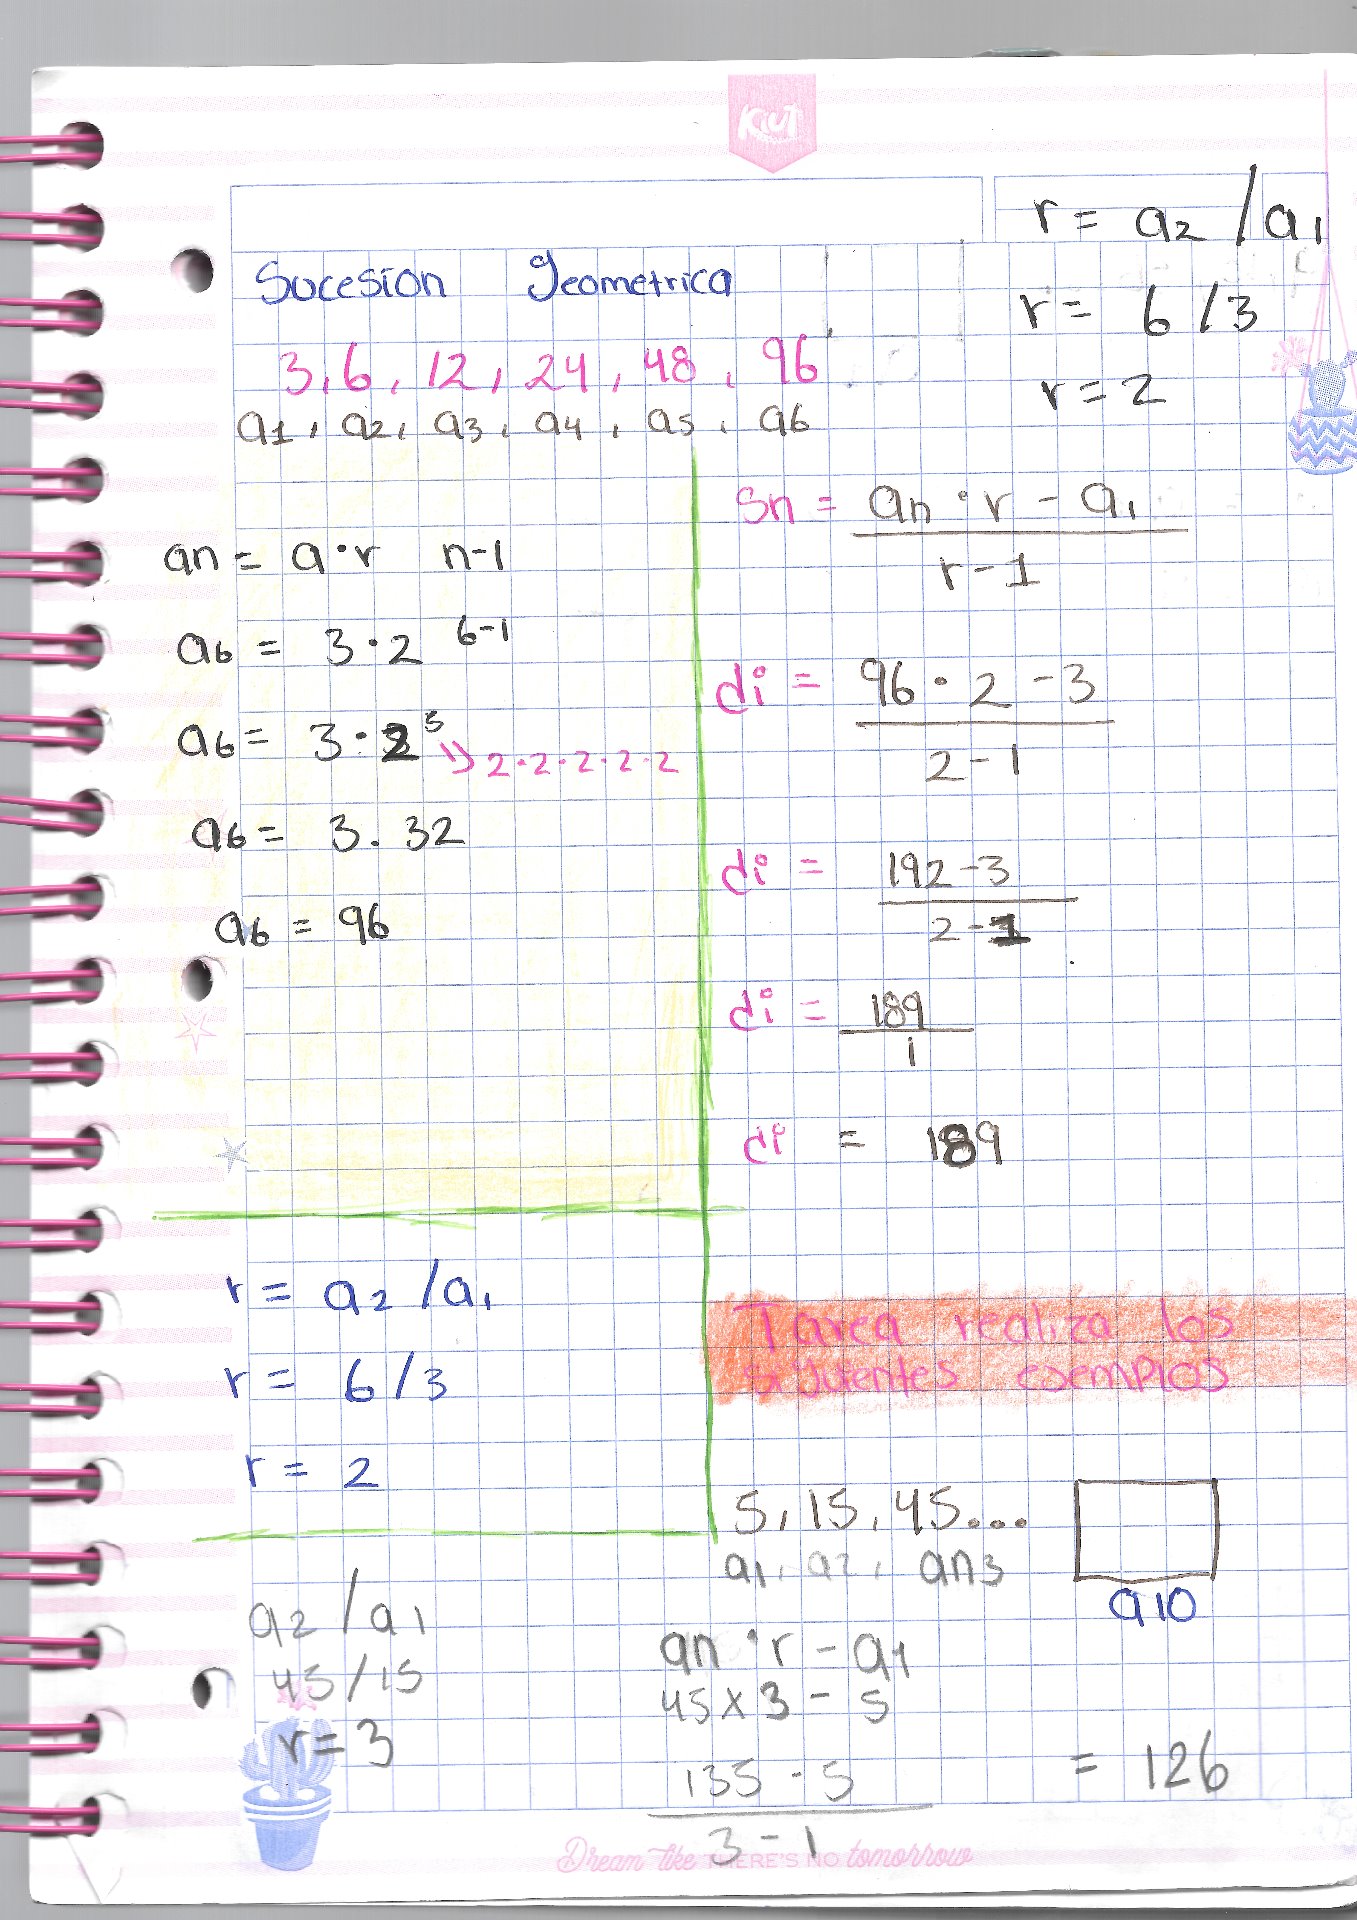 Kiut
r = a2 / a1
r = 6 / 3
r = 2
Sucesion geometrica
3, 6, 12, 24, 48, 96
a1, a2, a3, a4, a5, a6
an = a · r n-1
a6 = 3 · 2 6-1
a6 = 3 · 2 5 2·2·2·2·2
a6 = 3 . 32
a6 = 96
Sn = an · r - a1
r - 1
di = 96 · 2 - 3
2 - 1
di = 192 - 3
2 - 1
di = 189
1
di = 189
r = a2 / a1
r = 6 / 3
r = 2
Tarea realiza los
siguientes ejemplos
5, 15, 45...
a1, a2, an3
a10
a2 / a1
45 / 15
r = 3
an · r - a1
45 x 3 - 5
135 - 5
3 - 1
= 126
Dream like THERE'S NO tomorrow